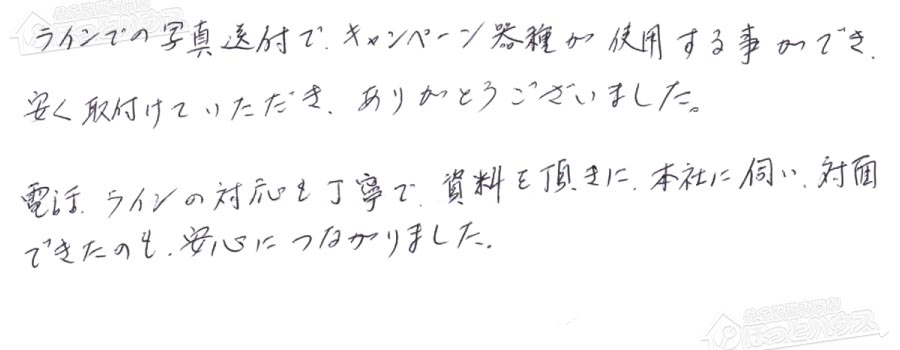 ラインでの写真送付で、キャンペーン器種が使用する事ができ、
安く取付けていただき、ありがとうございました。
電話、ラインの対応も丁寧で、資料を頂きに、本社に伺い、対面
できたのも、安心につながりました。
ほっとハウス